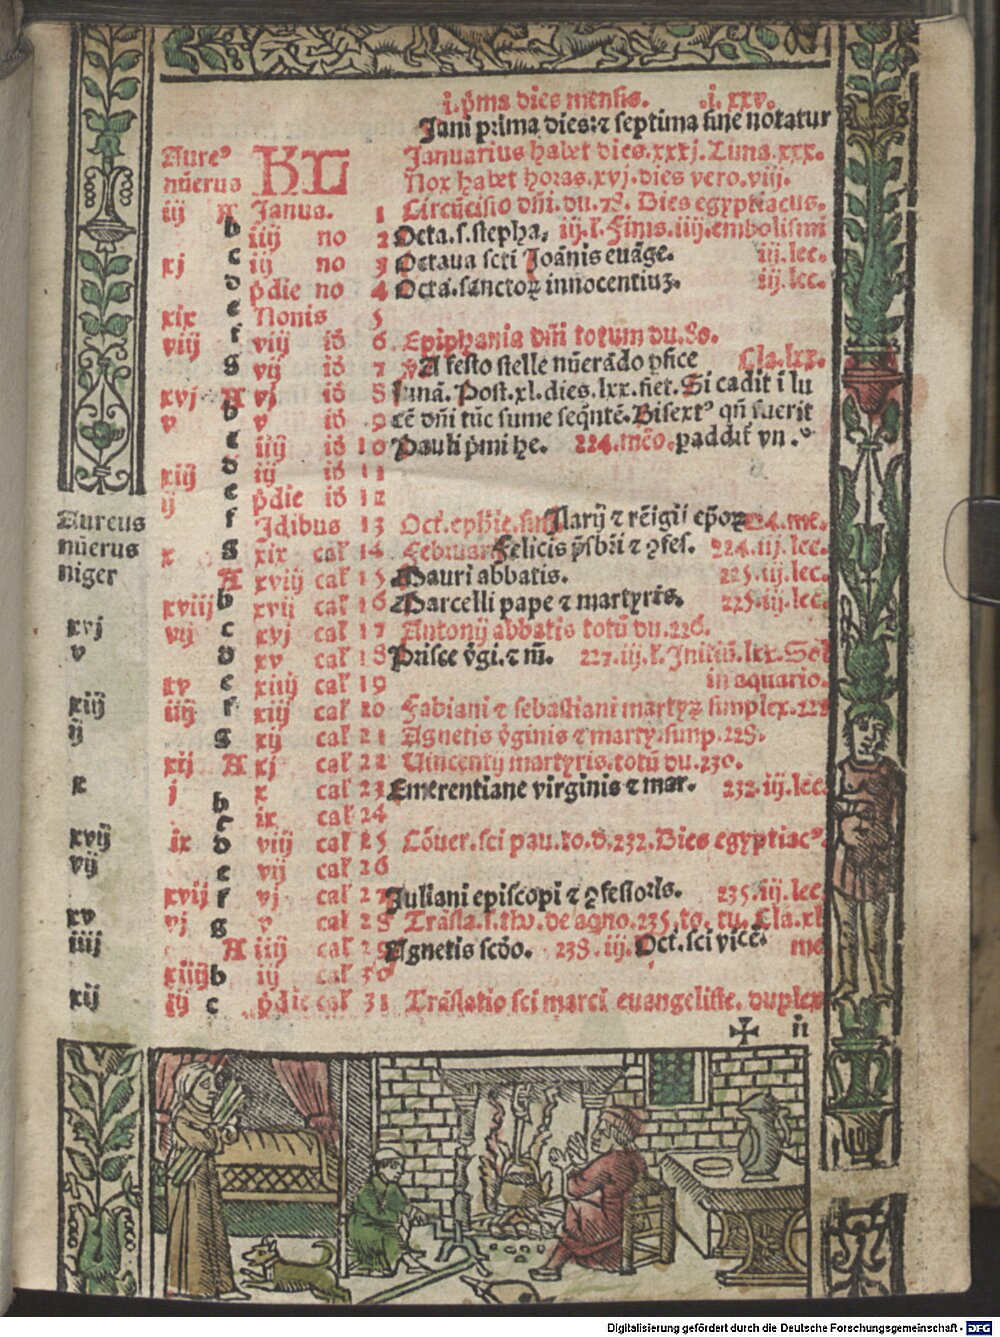 i. pͥma dies mensis. .i. xxv.
Jani prima dies: ⁊ septima fine notatur
Aureꝰ KL Januarius habet dies.xxxj.Luna.xxx.
nūerus Nox habet horas.xvj.dies vero.viij.
iij A Janua. 1 Circūcisio dñi.du.78. Dies egyptiacus.
b iiij no 2 Octa.s.stepha. iij.l.Finis.iiij.embolismi
xj c iij no 3 Octaua scti Joānis euāge. iij.lec.
d p̄die no 4 Octa.sanctoꝝ innocentiuꝫ. iij.lec.
xix e Nonis 5
viij f viij id 6 Epiphania dñi totum du.80.
g vij id 7 A festo stelle nūerādo ꝑfice Cla.lxx.
xvj A vj id 8 lunā. Post.xl.dies.lxx.fiet.Si cadit i lu
v b v id 9 cē dñi tūc sume seq̄ntē.Bisextꝰ qñ fuerit
c iiij id 10 Pauli pͥmi he. 224.mēo.paddit̄ vn.
xiij d iij id 11
ij e p̄die id 12
Aureus f Jdibus 13 Oct.ephie. Narij ⁊ rēigij ep̄oꝝ 224.me.
nūerus x g xix cal 14 Februar Felicis p̄sbr̄i ⁊ ꝯfes. 224.iij.lec.
niger A xviij cal 15 Mauri abbatis. 225.iij.lec.
xviij b xvij cal 16 Marcelli pape ⁊ martyris. 225.iij.lec.
xvj vij c xvj cal 17 Antonij abbatis totū du.226.
v d xv cal 18 Prisce v̄gi.⁊ m̄. 227.iij.l.Initiū.lxx.Sol
xv e xiiij cal 19 in aquario.
xiij iiij f xiij cal 20 Fabiani ⁊ sebastiani martyꝝ simplex.228
ij g xij cal 21 Agnetis v̄ginis ⁊ marty.simp.228.
xij A xj cal 22 Uincentij martyris.totū du.230.
x j b x cal 23 Emerentiane virginis ⁊ mar. 232.iij.lec.
c ix cal 24
xvij ix d viij cal 25 Cōuer.sci pau.to.d.232.Dies egyptiacꝰ.
vij e vij cal 26
xvij f vj cal 27 Juliani episcopi ⁊ ꝯfessoris. 235.iij.lec
xv vj g v cal 28 Trāsla.s.tho.de aqno.235.to.tu. Cla.xl
iiij A iiij cal 29 Agnetis scd̄o. 238.iij. Oct.sci vicē. me
xiiij b iij cal 30
xij iij c p̄die cal 31 Trāslatio sci marci euangeliste. duplex
✠ ij
Digitalisierung gefördert durch die Deutsche Forschungsgemeinschaft - DFG